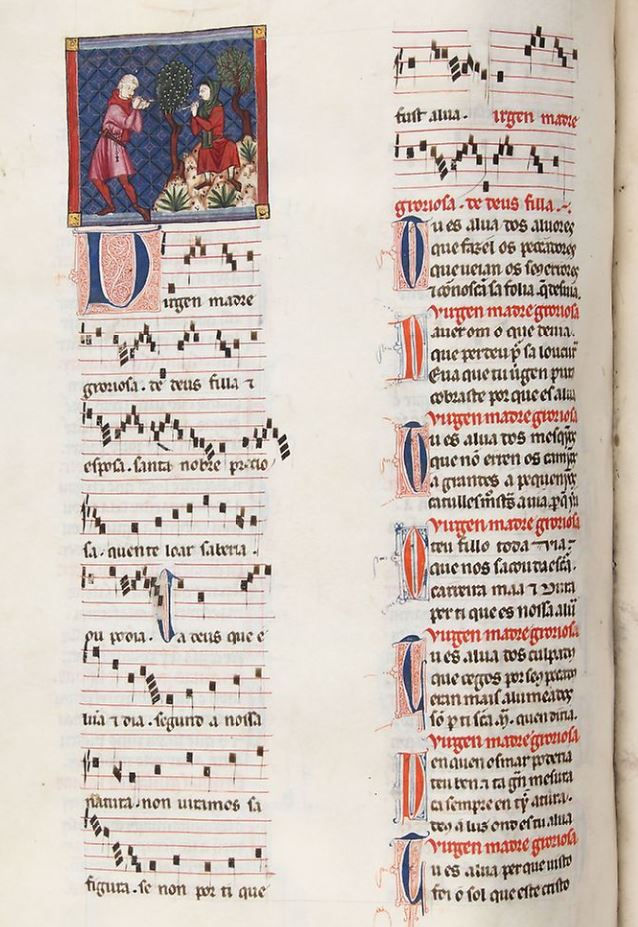 Uirgen madre
groriosa. de deus filla ⁊
esposa. santa nobre precio
sa. quente loar saberia.
ou podia. Ca deus que e
lum ⁊ dia. segund a nossa
natura. non uiramos sa
figura. se non por ti que
fust alua. uirgen madre
groriosa. de deus filla
Tu es alua dos aluores
que fazer os peccadores
que ueian os seus errores
⁊ connoscan sa folia
Uirgen madre groriosa
auer om o que deuia.
que perdeu p sa loucura
Eua que tu uirgen pura
cobraste por que es alua
Uirgen madre groriosa
Tu es alua dos mesq̄os
que nō erren os camȳos
a grandes a pequenȳos
Uirgen madre groriosa
teu fillo toda uia
que nos
carreira maa ⁊
per ti que es nossa alua
Uirgen madre groriosa
Tu es alua dos culpados
que cegos por seus peccados
eran mais alumeados
son p ti
Uirgen madre groriosa
en quen osmar poderia
teu ben ⁊ ta gran mesura
ca sempre en
a luz onde es tu alua
Uirgen madre groriosa
Tu es alua per que uisto
foi o sol que este cristo